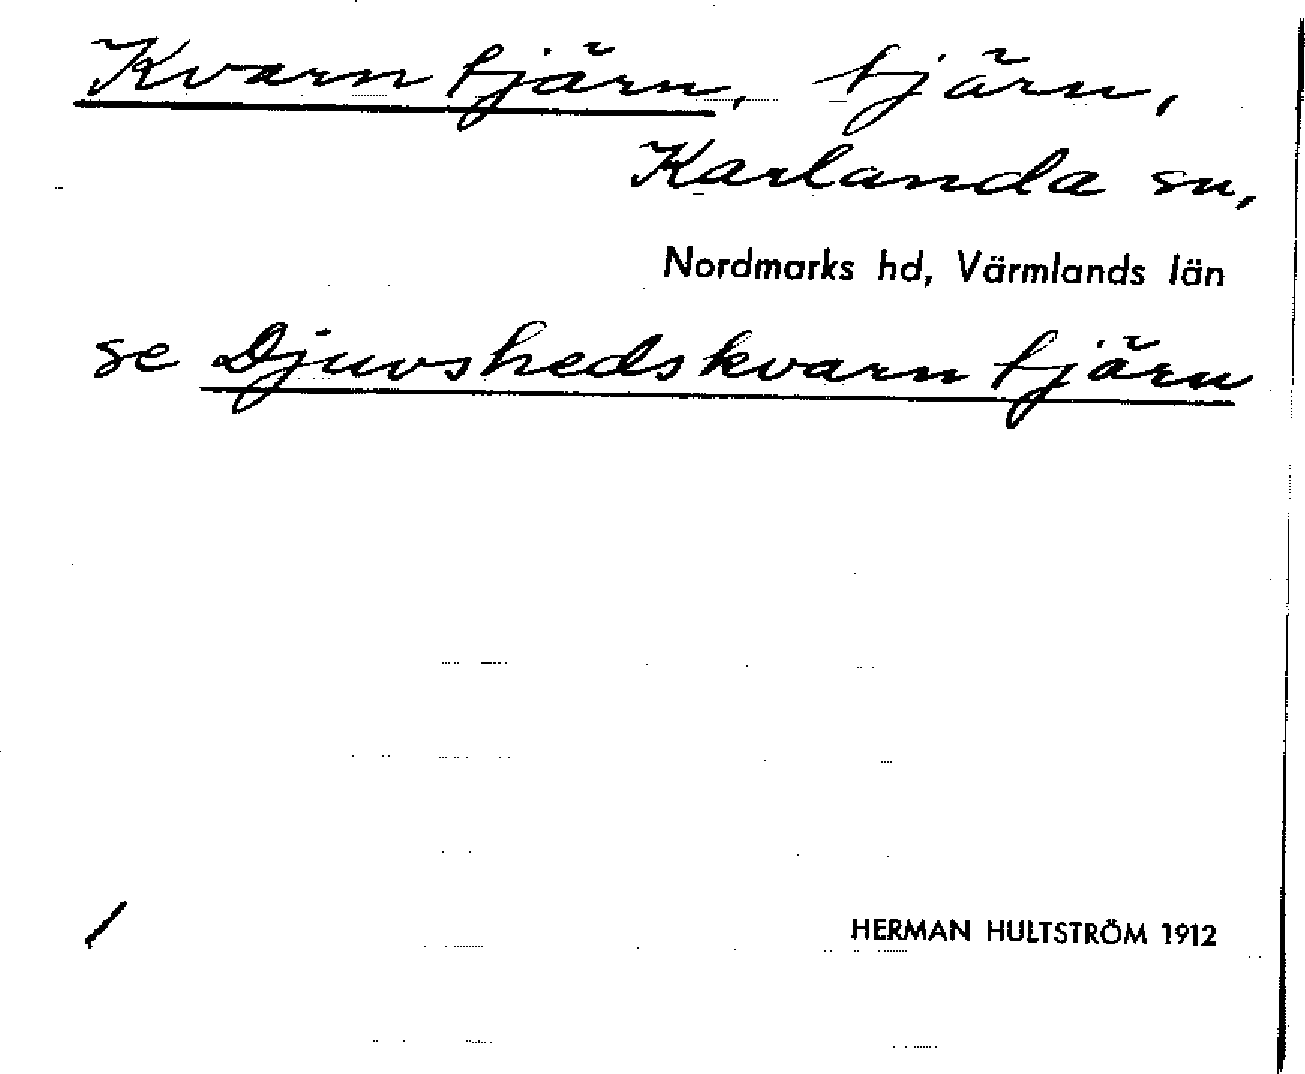 Kvarntjärn, tjärn,
Karlanda sn,
Nordmarks hd, Värmlands län
se Djuvshedskvarntjärn
HERMAN HULTSTRÖM 1912